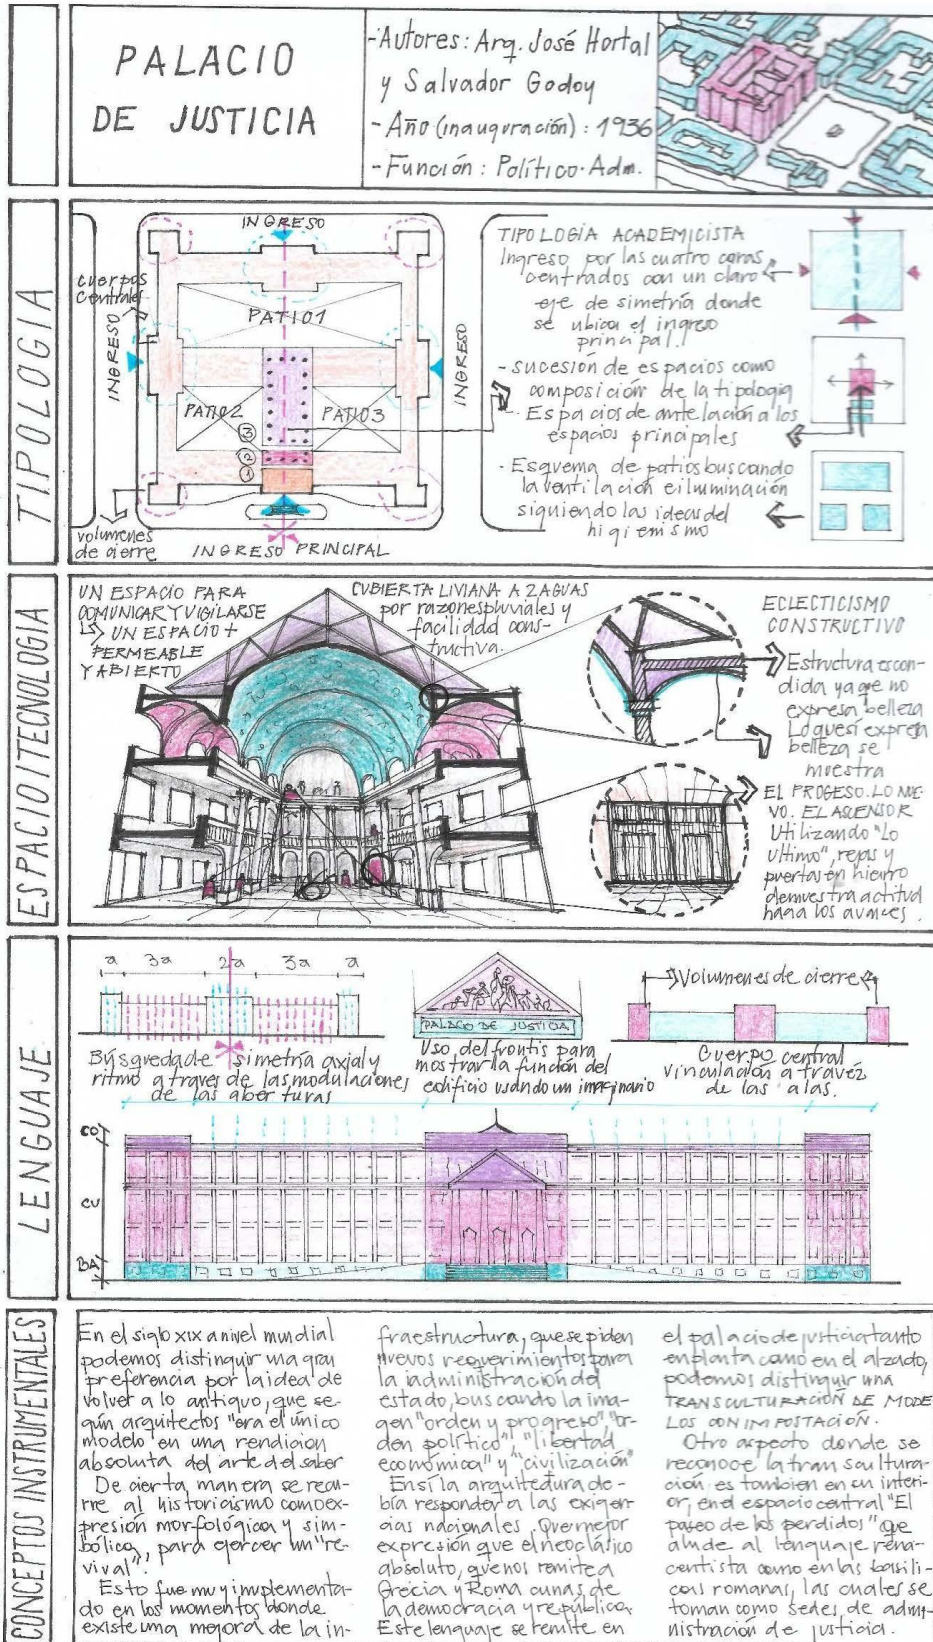 PALACIO
DE JUSTICIA
-Autores: Arq. José Hortal
y Salvador Godoy
- Año (inauguración): 1936
- Función: Político-Adm.
TIPOLOGIA
INGRESO
cuerpos
centrales
INGRESO
PATIO1
INGRESO
PATIO2
PATIO3
3
2
1
volumenes
de cierre
INGRESO PRINCIPAL
TIPOLOGÍA ACADEMICISTA
Ingreso por las cuatro caras
centrados con un claro
eje de simetría donde
se ubica el ingreso
principal.
- sucesión de espacios como
composición de la tipologia
- Espacios de antelación a los
espacios principales
- Esquema de patios buscando
la ventilación e iluminación
siguiendo las ideas del
higienismo
ESPACIO/TECNOLOGIA
UN ESPACIO PARA
COMUNICAR Y VIGILARSE
UN ESPACIO +
PERMEABLE
Y ABIERTO
CUBIERTA LIVIANA A 2 AGUAS
por razones pluviales y
facilidad cons-
tructiva.
ECLECTICISMO
CONSTRUCTIVO
Estructura escon-
dida ya qe no
expresa belleza
Lo que sí expresa
belleza se
muestra
EL PROGESO. LO NUE-
VO. EL ASCENSOR
Utilizando "Lo
ultimo", rejas y
puertas en hierro
demuestra actitud
hacia los avances.
LENGUAJE
a 3a 2a 3a a
Búsqueda de simetría axial y
ritmo a traves de las modulaciones
de las aberturas
PALACIO DE JUSTICIA
Uso del frontis para
mostrar la función del
edificio usando un imaginario
Volumenes de cierre
Cuerpo central
vinculación a travéz
de las alas.
CO
CU
BA
CONCEPTOS INSTRUMENTALES
En el siglo XIX a nivel mundial
podemos distinguir una gran
preferencia por la idea de
volver a lo antiguo, que se-
gún arquitectos "era el único
modelo" en una rendicion
absoluta del arte del saber
De cierta manera se recu-
rre al historicismo como ex-
presión morfológica y sim-
bólica, para ejercer un "re-
vival".
Esto fue muy implementa-
do en los momentos donde
existe una mejora de la in-
fraestructura, que se piden
nuevos requerimientos para
la administración del
estado, buscando la ima-
gen "orden y progreso" "or-
den político" "libertad
económica" y "civilización"
En sí la arquitectura de-
bía responder a las exigen-
cias nacionales. Que mejor
expresión que el neoclásico
absoluto, que nos remite a
Grecia y Roma cunas de
la democracia y república.
Este lenguaje se remite en
el palacio de justicia tanto
en planta como en el alzado,
podemos distinguir una
TRANSCULTURACIÓN DE MODE
LOS CON IMPOSTACIÓN.
Otro aspecto donde se
reconoce la transcultura-
ción es tambien en su interi-
or, en el espacio central "El
paseo de los perdidos" que
alude al lenguaje rena-
centista como en las basili-
cas romanas, las cuales se
toman como sedes de admi-
nistración de justicia.